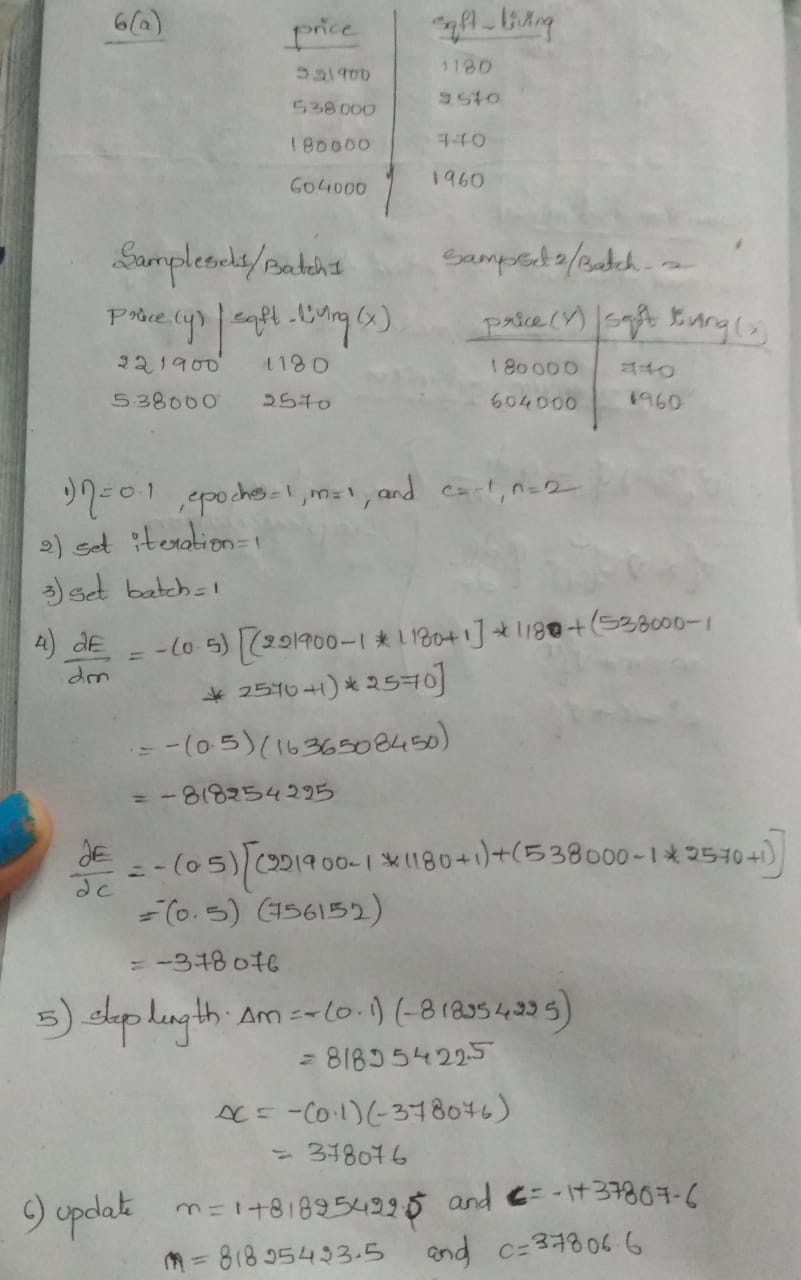 6(a) price | sqft-living
221900 | 1180
538000 | 2570
180000 | 770
604000 | 1960
Sampleset1/Batch1
Price(y) | sqft-living(x)
221900 1180
538000 2570
Sampset2/Batch-2
price(Y) | sqft living(x)
180000 | 770
604000 | 1960
1) η=0.1, epoches=1, m=1, and c=-1, n=2
2) set iteration=1
3) set batch=1
4) dE/dm = -(0.5) [(221900-1*1180+1]*1180+(538000-1
* 2570+1)*2570]
= -(0.5)(1636508450)
= -818254225
dE/dc = -(0.5)[(221900-1*1180+1)+(538000-1*2570+1)]
= -(0.5) (756152)
= -378076
5) step length. Δm = -(0.1)(-818254225)
= 81825422.5
Δc = -(0.1)(-378076)
= 378076
6) update m=1+81825422.5 and c=-1+37807.6
m=81825423.5 and c=37806.6